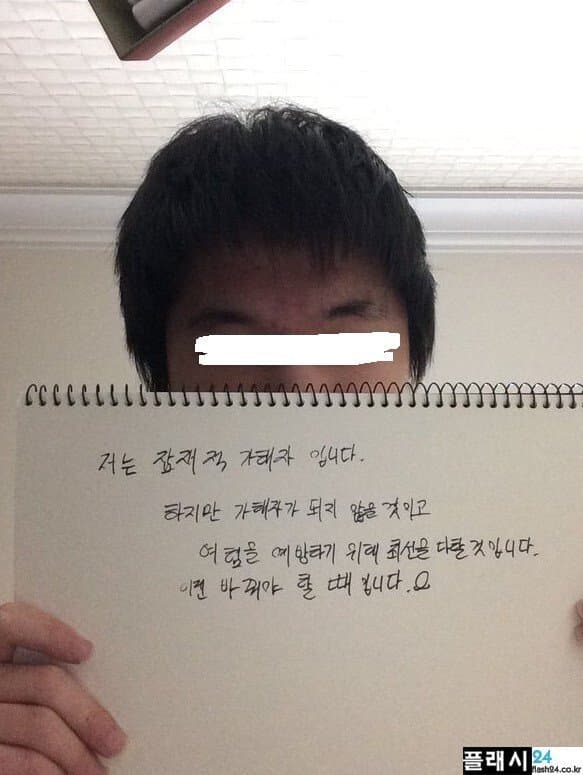 저는 잠재적 가해자 입니다.
하지만 가해자가 되지 않을 것이고
여혐을 예방하기 위해 최선을 다할 것입니다.
이젠 바뀌야 할 때 입니다.
플래시24
flash24.co.kr